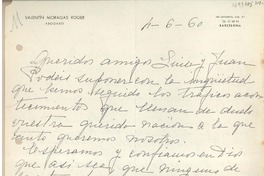 VALENTÍN MORAGAS ROGER
ABOGADO
BARCELONA
4-6-60
Queridos amigos Luis y Juan
Podéis suponer con la inquietud
que hemos seguido los trágicos acon
tecimientos que llenan de duelo
vuestra querida nación a la que
tanto queremos nosotros.
Esperamos y confiamos en Dios
que así sea, que ninguno de